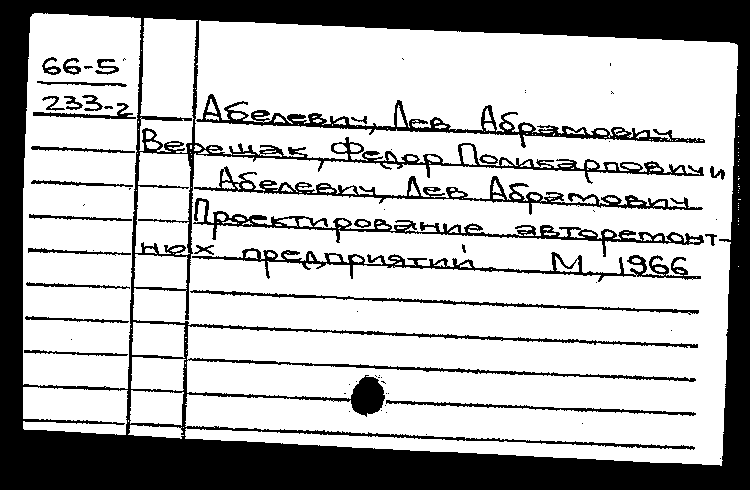 66-5
233-2
Абелевич, Лев Абрамович
Верещак, Федор Поликарпович и
Абелевич, Лев Абрамович
Проектирование авторемонт-
ных предприятий. М., 1966